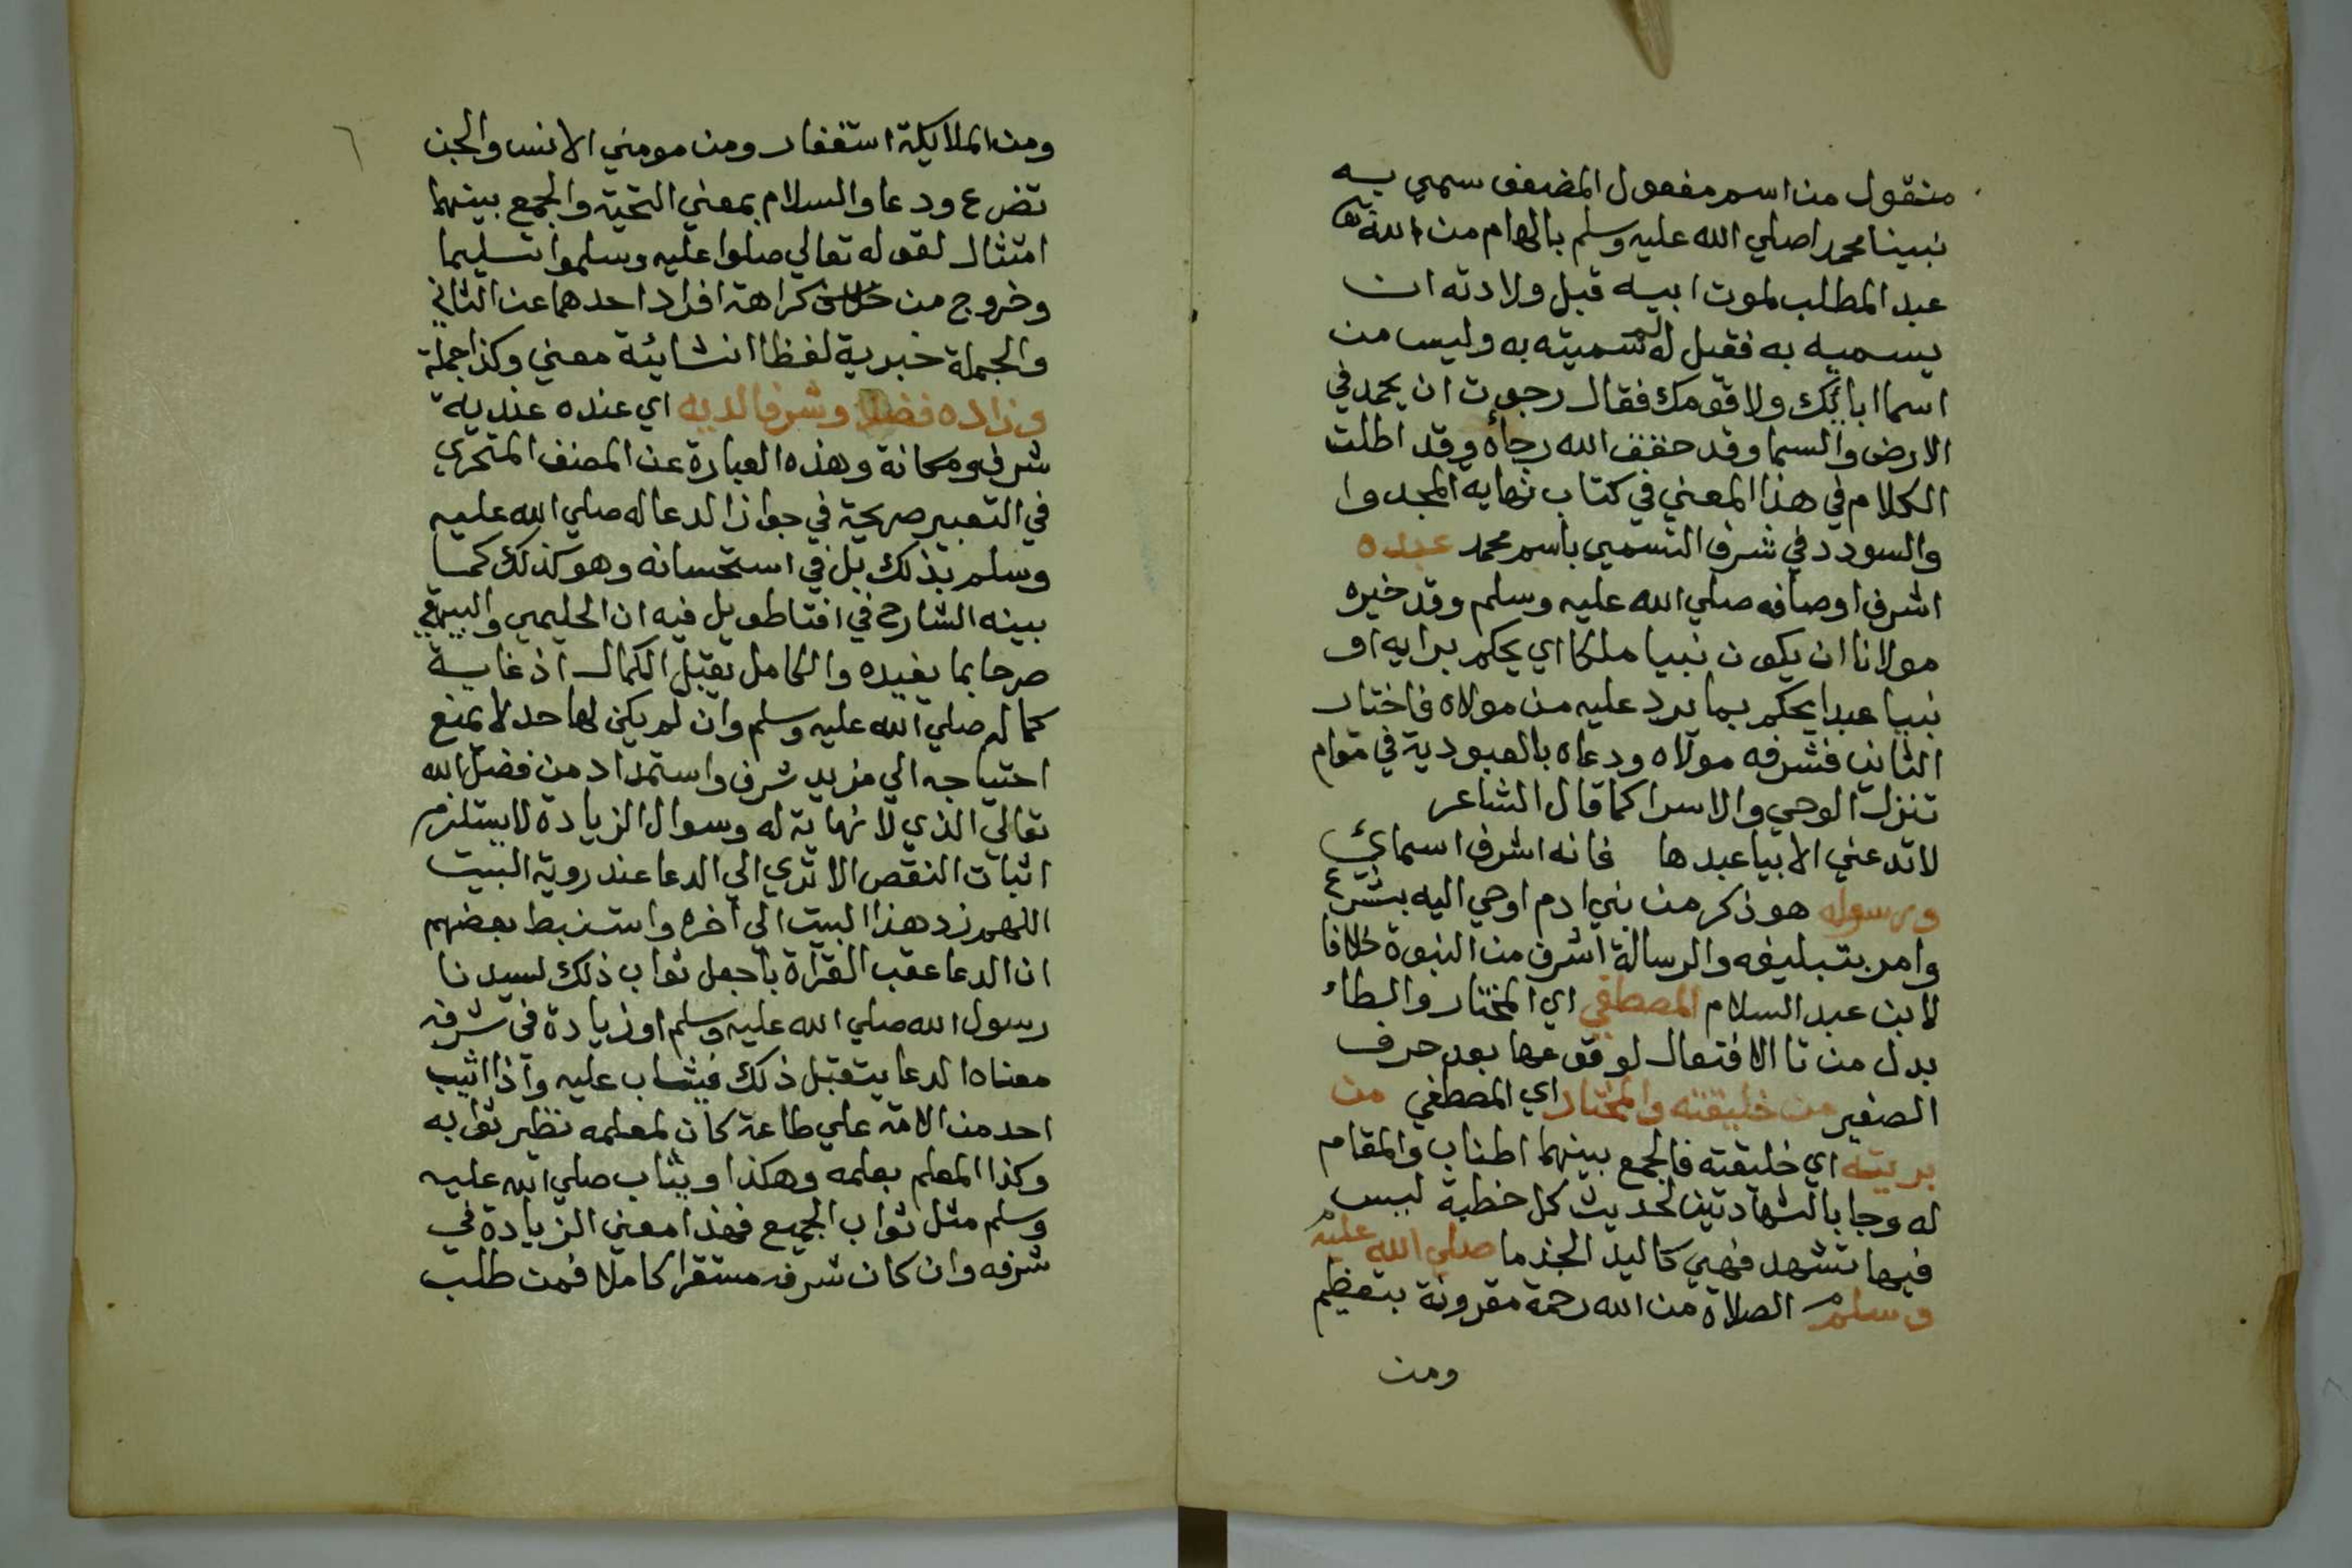 منقول من اسم مفعول المضعف سمي به
نبينا محمد اصلي الله عليه وسلم بالهام من الله
عبد المطلب لموت ابيه قبل ولادته ان
يسميه به فقيل له لم سميته به وليس من
اسما ابائك ولا قومك فقال رجوت ان يحمد في
الارض والسما وقد حقق الله رجاه وقد اطلت
الكلام في هذا المعني في كتاب نهاية المجد وا
والسودد في شرف التسمي باسم محمد عبده
اشرف اوصافه صلي الله عليه وسلم وقد خيره
مولانا ان يكون نبيا ملكا اي يحكم برايه او
نبيا عبدا يحكم بما يرد عليه من مولاه فاختار
الثاني فشرفه مولاه ودعاه بالعبودية في مقام
تنزل الوحي والاسرا كما قال الشاعر
لا تدعني الا بيا عبدها فانه اشرف اسمائي
ورسوله هو ذكر من بني ادم اوحي اليه بشرع
وامر بتبليغه والرسالة اشرف من النبوة خلافا
لابن عبد السلام المصطفي اي المختار والطاء
بدل من تا الافتعال لوقوعها بعد حرف
الصفير من خليقته والمختار اي المصطفي من
بريته اي خليقته فالجمع بينهما اطناب والمقام
له وجا بالشهادتين لحديث كل خطبة ليس
فيها تشهد فهي كاليد الجذما صلي الله عليه
وسلم الصلاة من الله رحمة مقرونة بتعظيم
ومن
٦
ومن الملايكة استغفار ومن مومني الانس والجن
تضرع ودعا والسلام بمعني التحية والجمع بينهما
امتثال لقوله تعالي صلوا عليه وسلموا تسليما
وخروج من كراهة افراد احدهما عن الثاني
والجملة خبرية لفظا انشائية معني وكذا جملة
وزاده فضلا وشرفا لديه اي عنده عندية
شرف ومكانة وهذه العبارة عن المصنف المتحري
في التعبير صريحة في جواز الدعا له صلي الله عليه
وسلم بذلك بل في استحسانه وهو كذلك كما
بينه الشارح في افتا طويل فيه ان الحليمي والبيهقي
صرحا بما يفيده والكامل يقبل الكمال اذ غاية
كماله صلي الله عليه وسلم وان لم يكن لها حد لا يمنع
احتياجه الي مزيد شرف واستمداد من فضل الله
تعالي الذي لا نهاية له وسوال الزيادة لا يستلزم
اثبات النقص الا تري الي الدعا عند روية البيت
اللهم زد هذا البيت الي اخره واستنبط بعضهم
ان الدعا عقب القراة باجعل ثواب ذلك لسيدنا
رسول الله صلي الله عليه وسلم او زيادة في شرفه
معناه الدعا يتقبل ذلك فيثاب عليه واذا اثيب
احد من الامة علي طاعة كان لمعلمه نظير ثوابه
وكذا المعلم بعلمه وهكذا ويثاب صلي الله عليه
وسلم مثل ثواب الجميع فهذا معني الزيادة في
شرفه وان كان شرفه مستقرا كاملا فمن طلب